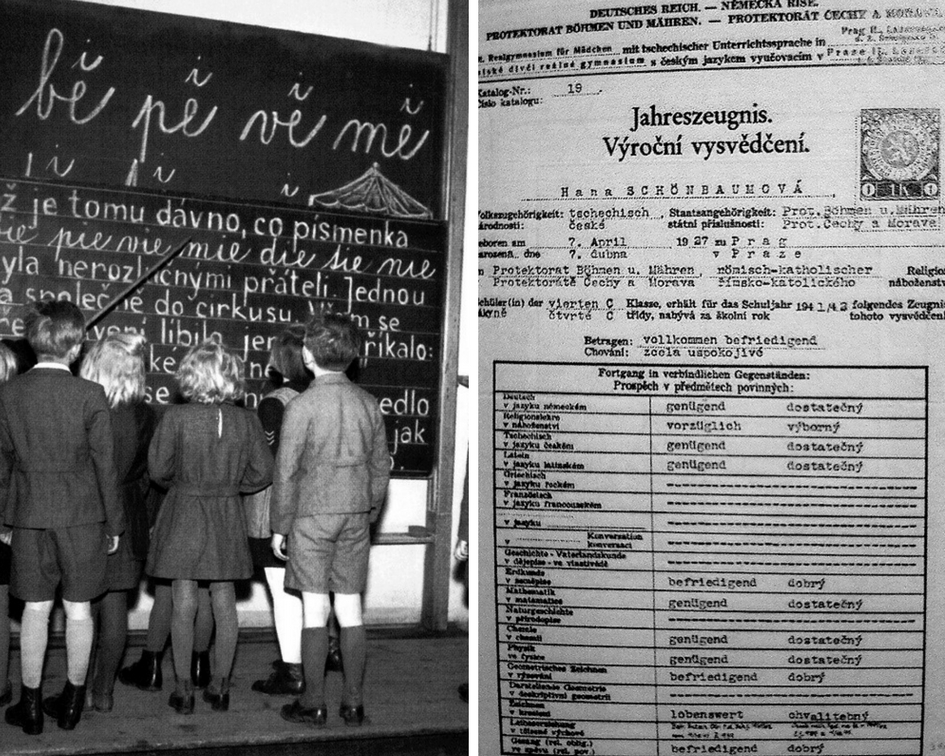 bě pě vě mě
i i i i
ž je tomu dávno, co písmenka
pie vie mie die tie nie
yla nerozlučnými přáteli. Jednou
společně do cirkusu.
líbilo
říkalo:
jak
DEUTSCHES REICH. — NĚMECKÁ ŘÍŠE.
PROTEKTORAT BÖHMEN UND MÄHREN. — PROTEKTORÁT ČECHY A MORAVA.
Realgymnasium für Mädchen mit tschechischer Unterrichtssprache in Prag II.
dívčí reálné gymnasium s českým jazykem vyučovacím v Praze II.
Katalog-Nr.: 19
Číslo katalogu:
Jahreszeugnis.
Výroční vysvědčení.
1K
Hana SCHÖNBAUMOVÁ
Volkszugehörigkeit: tschechisch, Staatsangehörigkeit: Prot. Böhmen u. Mähren
národnosti: české státní příslušnosti: Prot. Čechy a Morava
geboren am 7. April 1927 zu Prag
narozena dne 7. dubna v Praze
Protektorat Böhmen u. Mähren, römisch-katholischer Religion
Protektorátě Čechy a Morava římsko-katolického náboženství
Schüler(in) der vierten C Klasse, erhält für das Schuljahr 1941/42 folgendes Zeugnis
čtvrté C třídy, nabývá za školní rok tohoto vysvědčení
Betragen: vollkommen befriedigend
Chování: zcela uspokojivé
Fortgang in verbindlichen Gegenständen:
Prospěch v předmětech povinných:
Deutsch
v jazyku německém genügend dostatečný
Religionslehre
v náboženství vorzüglich výborný
Tschechisch
v jazyku českém genügend dostatečný
Latein
v jazyku latinském genügend dostatečný
Griechisch
v jazyku řeckém
Französisch
v jazyku francouzském
v jazyku
Konversation
v konversaci
Geschichte - Vaterlandskunde
v dějepise - ve vlastivědě
Erdkunde
v zeměpise befriedigend dobrý
Mathematik
v matematice genügend dostatečný
Naturgeschichte
v přírodopise
Chemie
v chemii genügend dostatečný
Physik
ve fysice genügend dostatečný
Geometrisches Zeichnen
v rýsování befriedigend dobrý
Darstellende Geometrie
v deskriptivní geometrii
Zeichnen
v kreslení lobenswert chvalitebný
Leibeserziehung
v tělesné výchově
Gesang (rel. oblig.)
ve zpěvu (rel. pov.) befriedigend dobrý